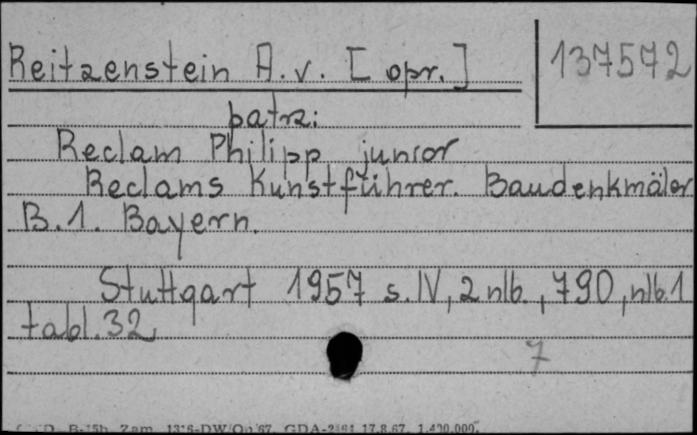 Reitzenstein A.v. [opr.]
137572
patrz:
Reclam Philipp junior
Reclams Kunstführer. Baudenkmäler
B.1. Bayern.
Stuttgart 1957 s. IV, 2 nlb., 790, nlb.1
tabl. 32
7
B-15h Zam. GDA- 17.8.67. 1.400.000.